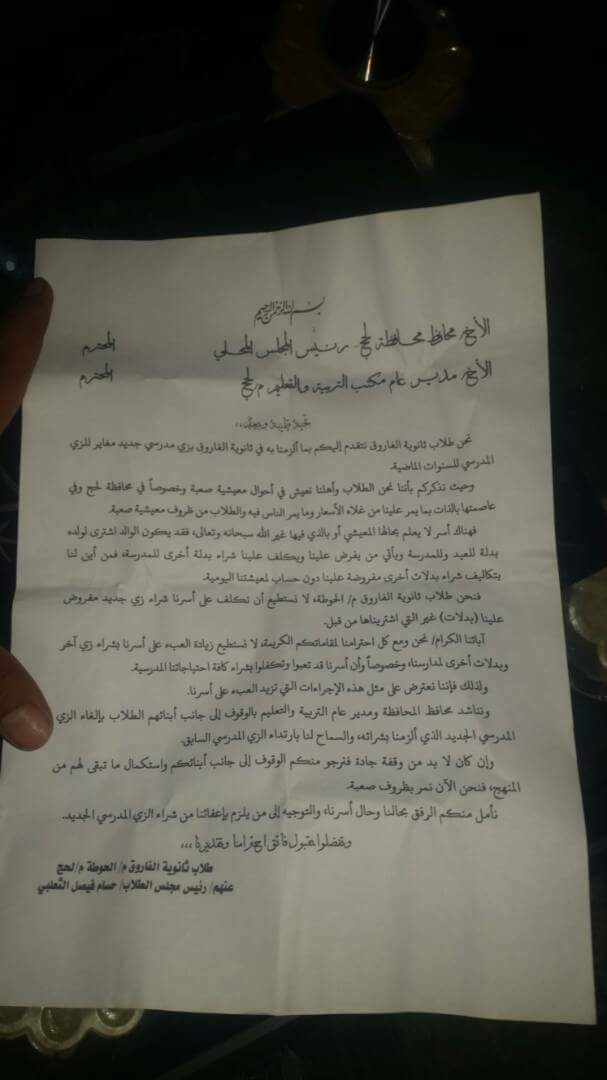 بسم الله الرحمن الرحيم
الأخ/ محافظ محافظة لحج - رئيس المجلس المحلي المحترم
الأخ/ مدير عام مكتب التربية والتعليم م/لحج المحترم
تحية طيبة وبعد،،،
نحن طلاب ثانوية الفاروق نتقدم إليكم بما ألزمنا به في ثانوية الفاروق بزي مدرسي جديد مغاير للزي
المدرسي للسنوات الماضية.
وحيث نذكركم بأننا نحن الطلاب وأهلنا نعيش في أحوال معيشية صعبة وخصوصاً في محافظة لحج وفي
عاصمتها بالذات بما يمر علينا من غلاء الأسعار وما يمر الناس فيه والطلاب من ظروف معيشية صعبة.
فهناك أسر لا يعلم بحالها المعيشي أو بالذي فيها غير الله سبحانه وتعالى، فقد يكون الوالد اشترى لولده
بدلة للعيد وللمدرسة ويأتي من يفرض علينا ويكلف علينا شراء بدلة أخرى للمدرسة، فمن أين لنا
بتكاليف شراء بدلات أخرى مفروضة علينا دون حساب لمعيشتنا اليومية.
فنحن طلاب ثانوية الفاروق م/ الحوطة، لا نستطيع أن نكلف على أسرنا شراء زي جديد مفروض
علينا (بدلات) غير التي اشتريناها من قبل.
آبائنا الكرام/ نحن ومع كل احترامنا لمقاماتكم الكريمة، لا نستطيع زيادة العبء على أسرنا بشراء زي آخر
وبدلات أخرى لمدارسنا، وخصوصاً وأن أسرنا قد تعبوا وتكفلوا بشراء كافة احتياجاتنا المدرسية.
ولذلك فإننا نعترض على مثل هذه الإجراءات التي تزيد العبء على أسرنا.
ونناشد محافظ المحافظة ومدير عام التربية والتعليم بالوقوف إلى جانب أبنائهم الطلاب بإلغاء الزي
المدرسي الجديد الذي ألزمنا بشرائه، والسماح لنا بارتداء الزي المدرسي السابق.
وإن كان لا بد من وقفة جادة فنرجو منكم الوقوف إلى جانب أبنائكم واستكمال ما تبقى لهم من
المنهج، فنحن الآن نمر بظروف صعبة.
نأمل منكم الرفق بحالنا وحال أسرنا، والتوجيه إلى من يلزم بإعفائنا من شراء الزي المدرسي الجديد.
وتفضلوا بقبول فائق احترامنا وتقديرنا،،،
طلاب ثانوية الفاروق م/ الحوطة م/لحج
عنهم/ رئيس مجلس الطلاب/ حسام فيصل الثعلبي